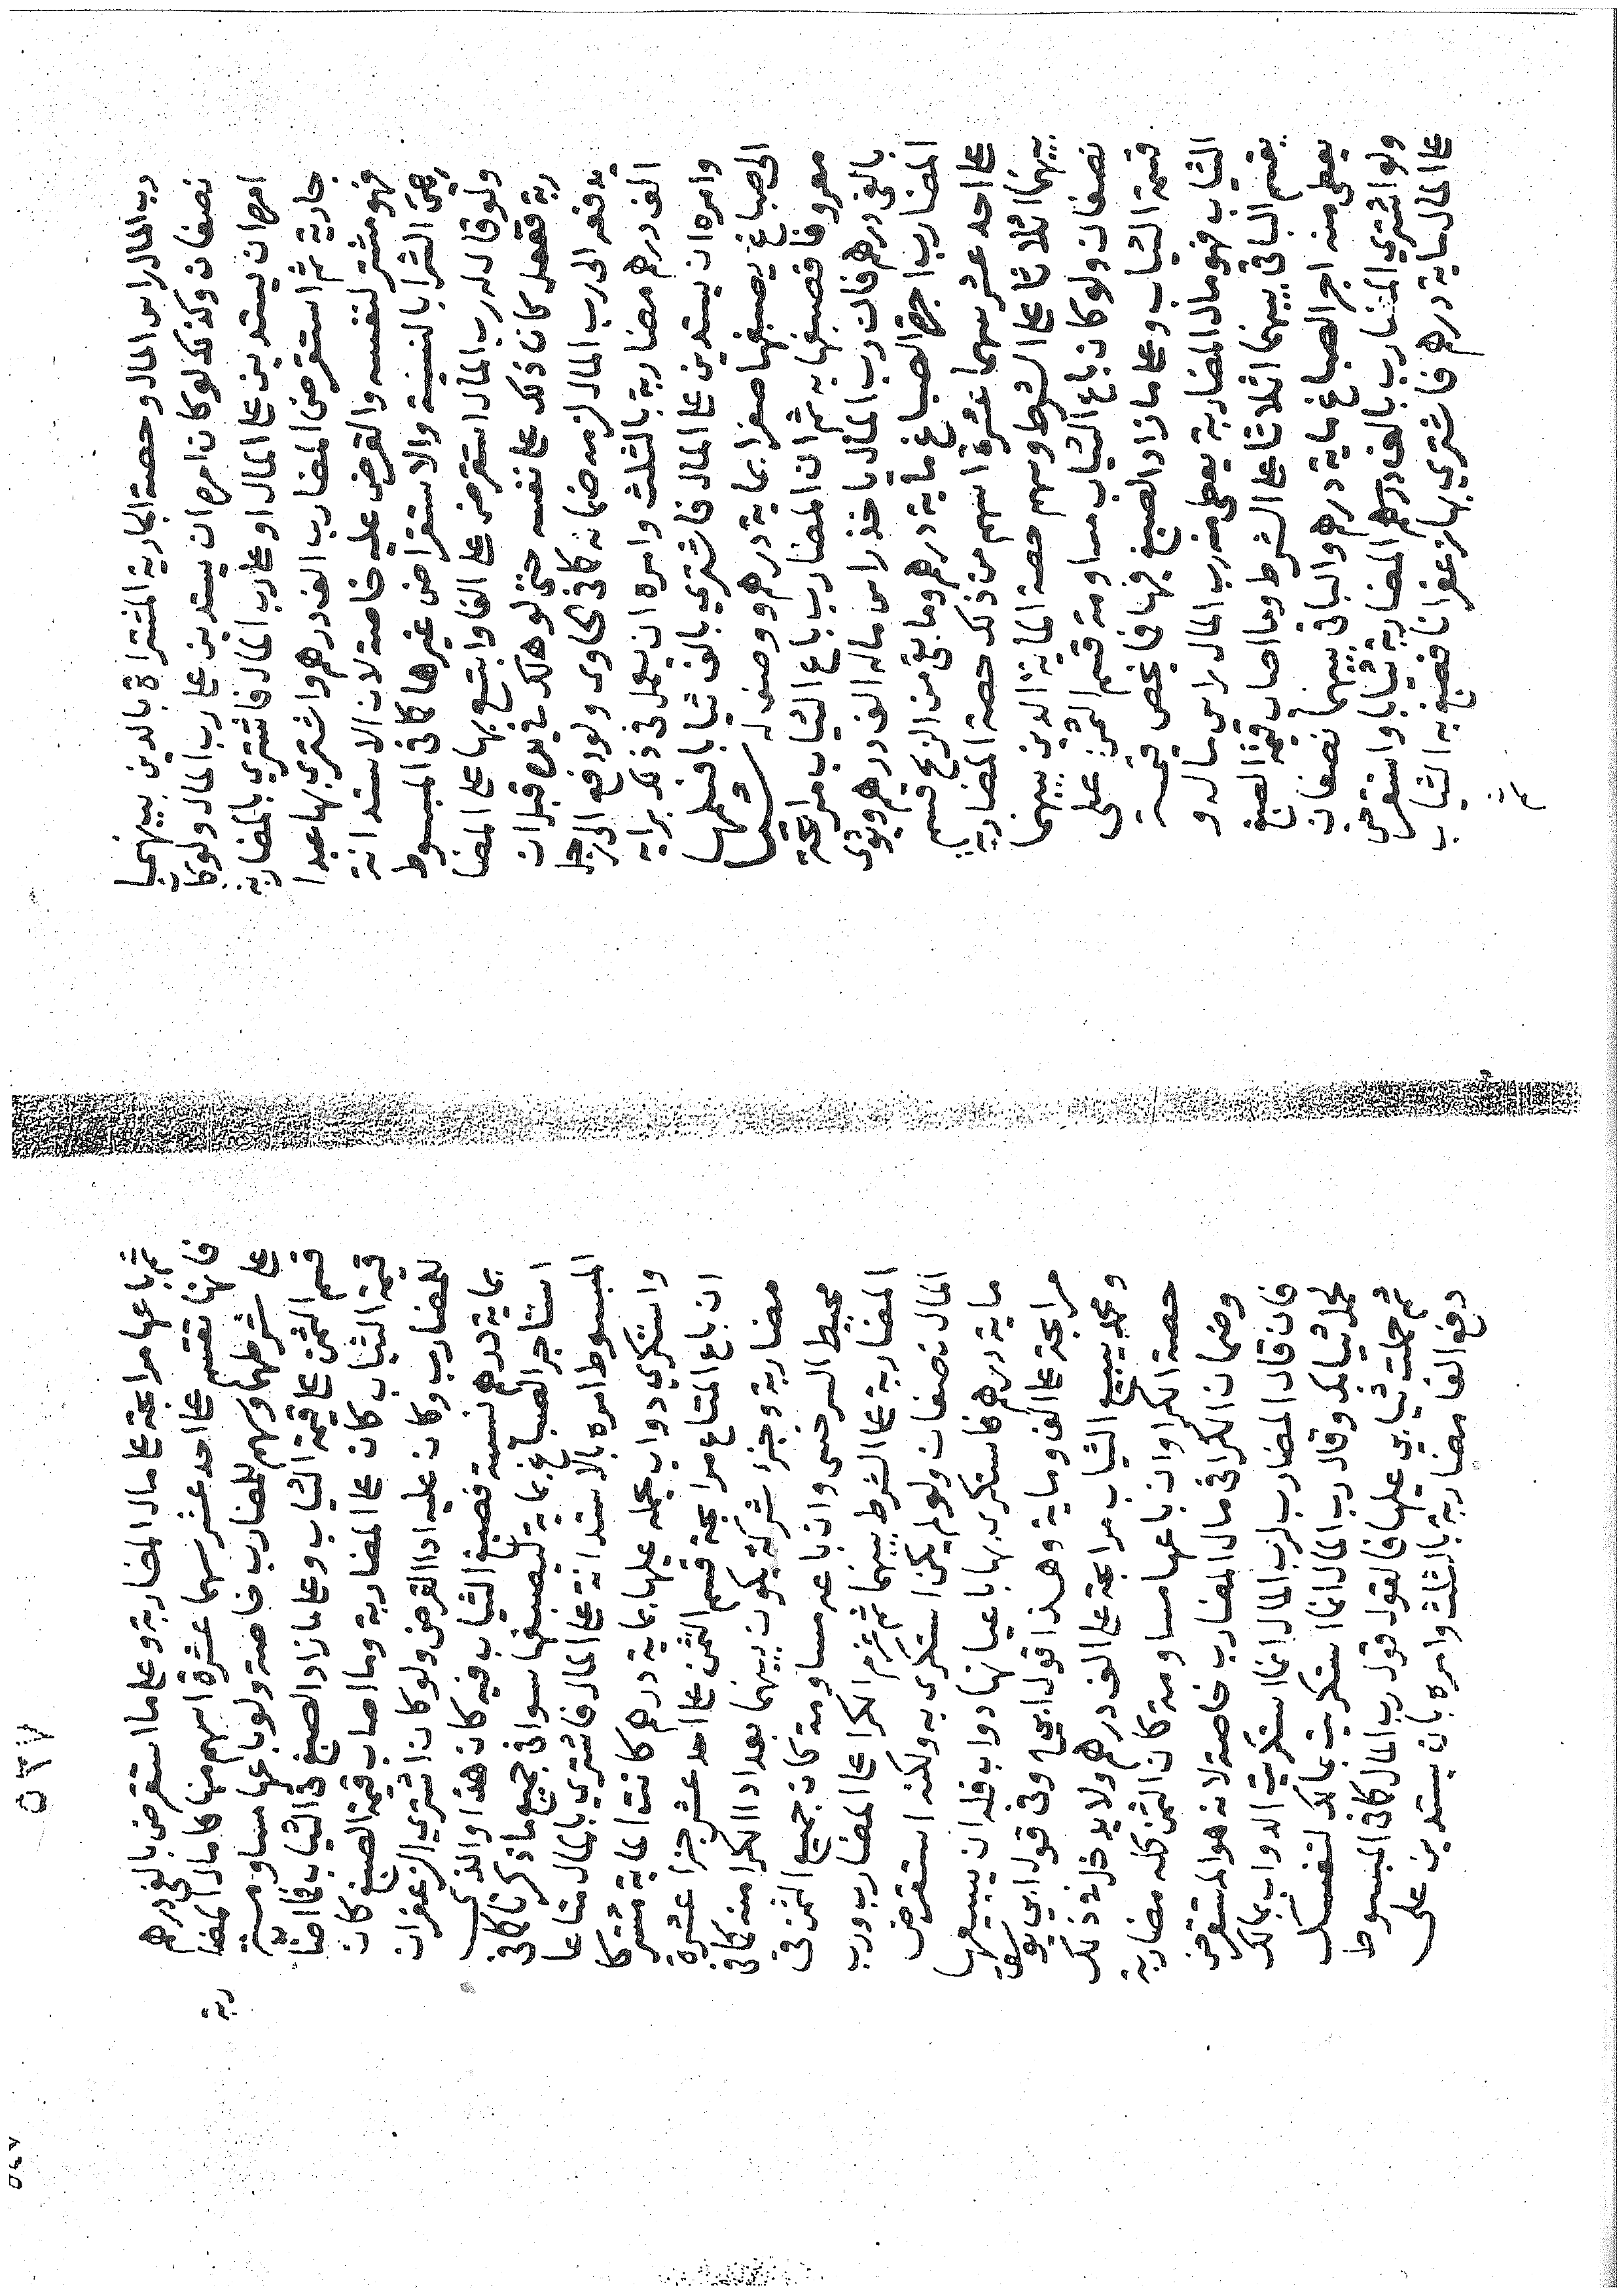 رب المال راس المال وحصة الجارية المشتراة بالدين بينهما
نصفان وكذلك لو كان امره ان يستدين على رب المال ولو كان
امره ان يستدين على المال او على رب المال فاشترى بالمضاربة
جارية ثم استقرض المضارب الف درهم واشترى بها عبدا
فهو مشتر لنفسه والقرض عليه خاصة لان الاستدانة
هي الشرا بالنسية والاستقراض غيرها كافي المبسوط
ولو قال له رب المال استقرض على الفا وابتع بها على المضا
ربة ففعل كان ذلك على نفسه حتى لو هلك في يده قبل ان
يدفعه الى رب المال لزمه ضمانه كافي الحاوى ولو دفع الى رجل
الف درهم مضاربة بالثلث وامره ان يعمل في ذلك برايه
وامره ان يستدين على المال فاشترى بالف ثيابا فسلمها
الى صباغ يصبغها صفرا بماية درهم ووصف له شيا
معروفا فصبغها به ثم ان المضارب باع الثياب مرابحة
بالفي درهم فان رب المال ياخذ راس ماله الف درهم ويودى
المضارب اجرة الصباغ ماية درهم وما بقي من الربح قسم
على احد عشر سهما عشرة اسهم من ذلك حصة المضاربة
بينهما اثلاثا على الشرط وسهم حصة الماية الدين بينهما
نصفان ولو كان باع الثياب مساومة قسم الثمن على
قيمة الثياب وعلى ما زاد الصبغ فيها فما يخص قيمة
الثياب فهو مال المضاربة يعطى منه رب المال راس ماله و
يقسم الباقي بينهما اثلاثا على الشرط وما اصاب قيمة الصبغ
يعطى منه اجر الصباغ ماية درهم والباقي بينهما نصفان
ولو اشترى المضارب بالف درهم المضاربة ثيابا واستقرض
على المال ماية درهم فاشترى بها زعفرانا فصبغ به الثياب
ثم
٥٣٧
ثم باعها مرابحة على مال المضاربة وعلى ما استقرض بالفي درهم
فانها تقسم على احد عشر سهما عشرة اسهم منها كامال المضا
ربة
على شرطهما وسهم للمضارب خاصة ولو باعها مساومة
قسم الثمن على قيمة الثياب وعلى ما زاد الصبغ في الثياب فما اصاب
قيمة الثياب كان على المضاربة وما اصاب قيمة الصبغ كان
للمضارب وكان عليه ادا القرض ولو كان اشترى الزعفران
بماية درهم نسية فصبغ الثياب فيه كان هذا والذي
استاجر الصباغ بماية ليصبغها سوا في جميع ما ذكرنا كافي
المبسوط امره بالاستدانة على المال فاشترى بالمال متاعا
واستكرى دواب يحمله عليها بماية درهم كانت الماية مشتركا
ان باع المتاع مرابحة قسم الثمن على احد عشر جزا عشرة
مضاربة وجزء شركة يكون بينهما بعد ادا الكرا منه كافي
محيط السرخسي وان باعه مساومة كان جميع الثمن في
المضاربة على الشرط بينهما ثم غرم الكرا على المضارب ورب
المال نصفان ولو لم يكن استكرى به ولكنه استقرض
ماية درهم فاستكرى بها باعيانها دواب فله ان يبيعها
مرابحة على الف وماية وهذا قول ابي ح وفي قول ابي يوسف
ومحمد يبيع الثياب مرابحة على الف درهم ولا يدخل في ذلك
حصة الكرا وان باعها مساومة كان الثمن كله مضاربة
وضمان الكرا في مال المضارب خاصة لانه هو المستقرض
فان قال المضارب لرب المال انما استكريت الدواب بمالك
لحمل ثيابك وقال رب المال انما استكريت بمالك لنفسك
ثم حملت ثيابي عليها فالقول قول رب المال كافي المبسوط
دفع الفا مضاربة بالثلث وامره بان يستدين على
٥٣٧